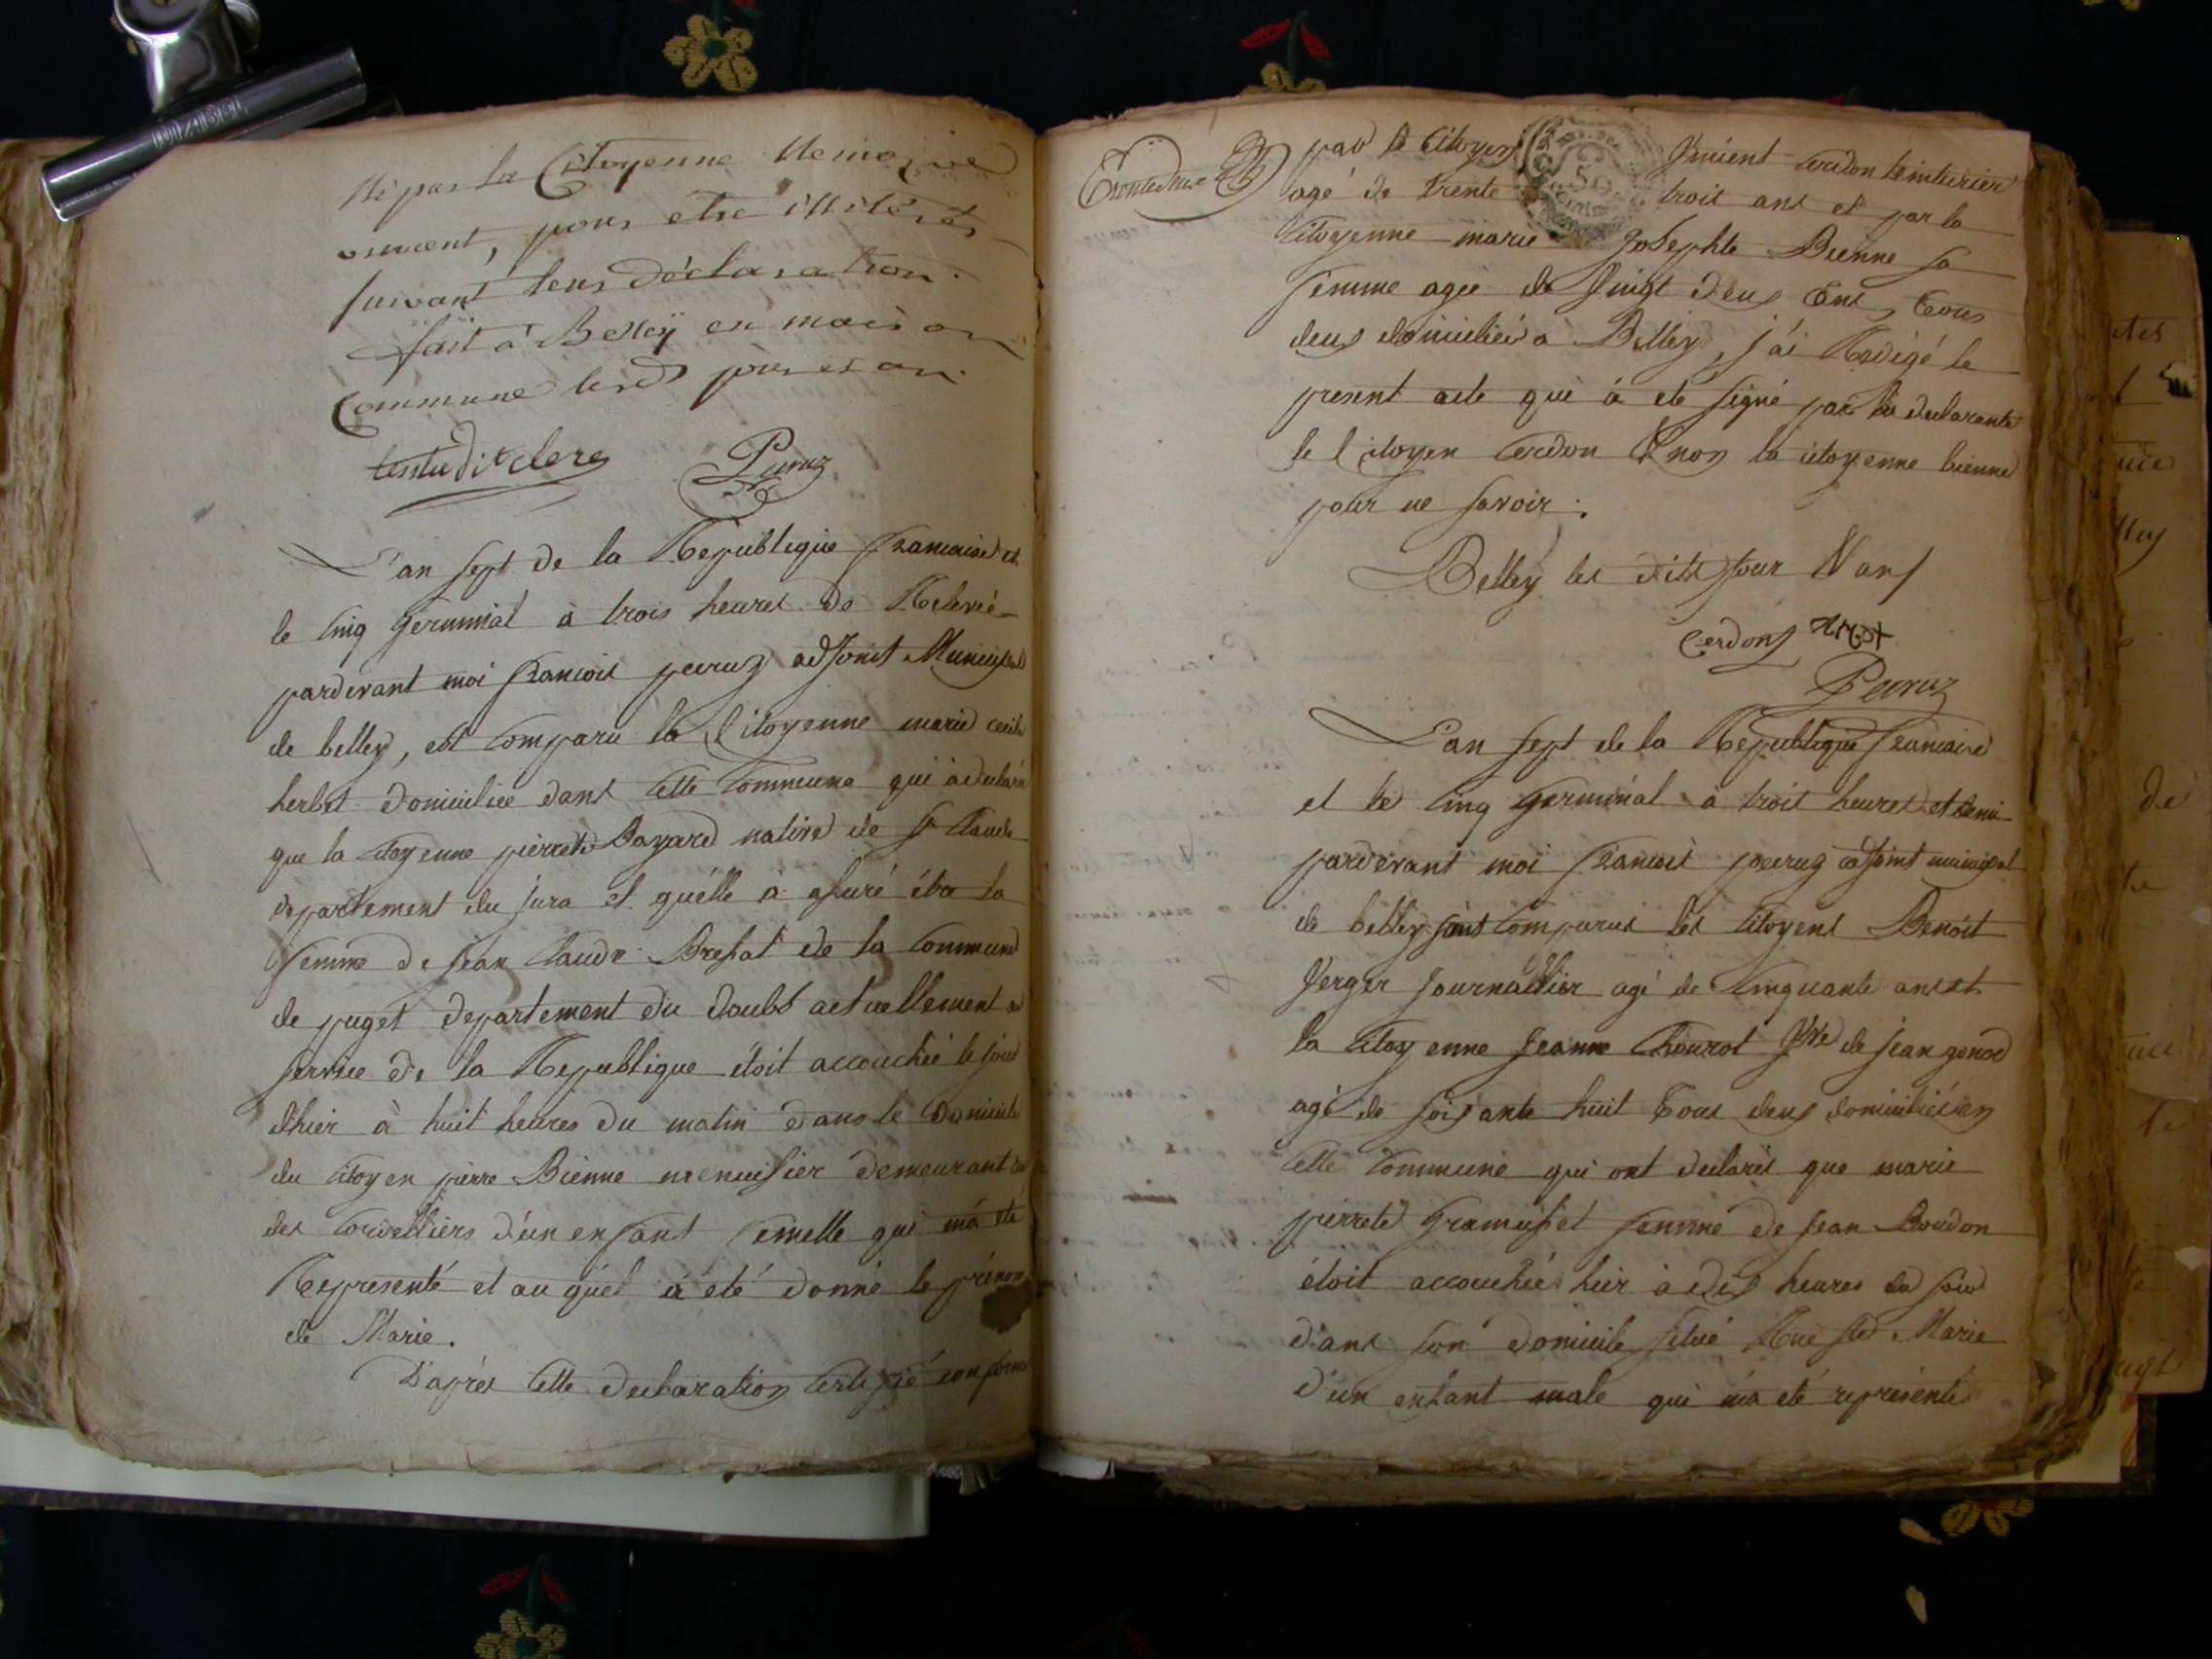 Ni par la Citoyenne
pour etre illiteres
suivant leur déclaration.
fait à Belley en maison
Commune lesds jour et an.
Peeruz
L'an sept de la République francaise et
le cinq Germinal à trois heures de Relevé
pardevant moi francois peeruz adjoint Municipal
de belley, est comparu la Citoyenne marie cecile
herbet domiciliee dans cette Commune qui a declaré
que la citoyenne pierrete Bayard native de St Claude
departement du jura et qu'elle à assuré être la
femme de jean Claude Bressat de la Commune
de puget departement du doubs actuellement au
service de la Republique étoit accouchée le jour
d'hier à huit heures du matin dans le Domicile
du citoyen pierre Bienne menuisier demeurant
des Cordelliers d'un enfant femelle qui m'a été
Représenté et au quel à été donné le prénom
de Marie.
D'aprés cette declaration certifié conforme
par le Citoyen Vincent Cerdon teinturier
agé de trente trois ans et par la
Citoyenne marie Josephte Bienne sa
femme agee de vingt deux ans, tous
deux domiciliés à Belley, j'ai Redigé le
present acte qui à eté signé par la declarante
le Citoyen Cerdon & non la citoyenne bienne
pour ne savoir.
Belley les dits jour & an
Cerdon
Peeruz
L'an sept de la Republique francaise
et le cinq germinal à trois heures et demi
pardevant moi francois peeruz adjoint municipal
de belley sont comparus les citoyens Benoit
Verger Journallier agé de cinquante ans et
la citoyenne Jeanne Chourot Vve de jean gonod
agé de soixante huit tous deux domiciliés en
cette Commune qui ont declarés que marie
pierrete Gramusset femme de Jean Boudon
étoit accouchée hier à dix heures du soir
dans son domicile situé Rue Ste Marie
d'un enfant male qui m'a eté représenté